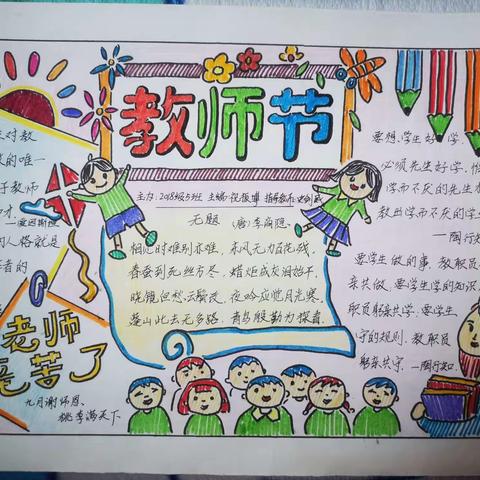 教师节
主办：2018级3班
无题
（唐）李商隐
相见时难别亦难，东风无力百花残。
春蚕到死丝方尽，蜡炬成灰泪始干。
晓镜但愁云鬓改，夜吟应觉月光寒。
蓬山此去无多路，青鸟殷勤为探看。
对教
的唯一
于教师
的人格就是
者的
老师
辛苦了
九月谢师恩、
桃李满天下
要想学生好学，
必须先生好学，惟
学而不厌的先生才
教出学而不厌的学生
—陶行知
要学生做的事，教职员
亲共做。要学生学的知识，
职员躬亲共学。要学生
守的规则，教职员
躬亲共守。—陶行知